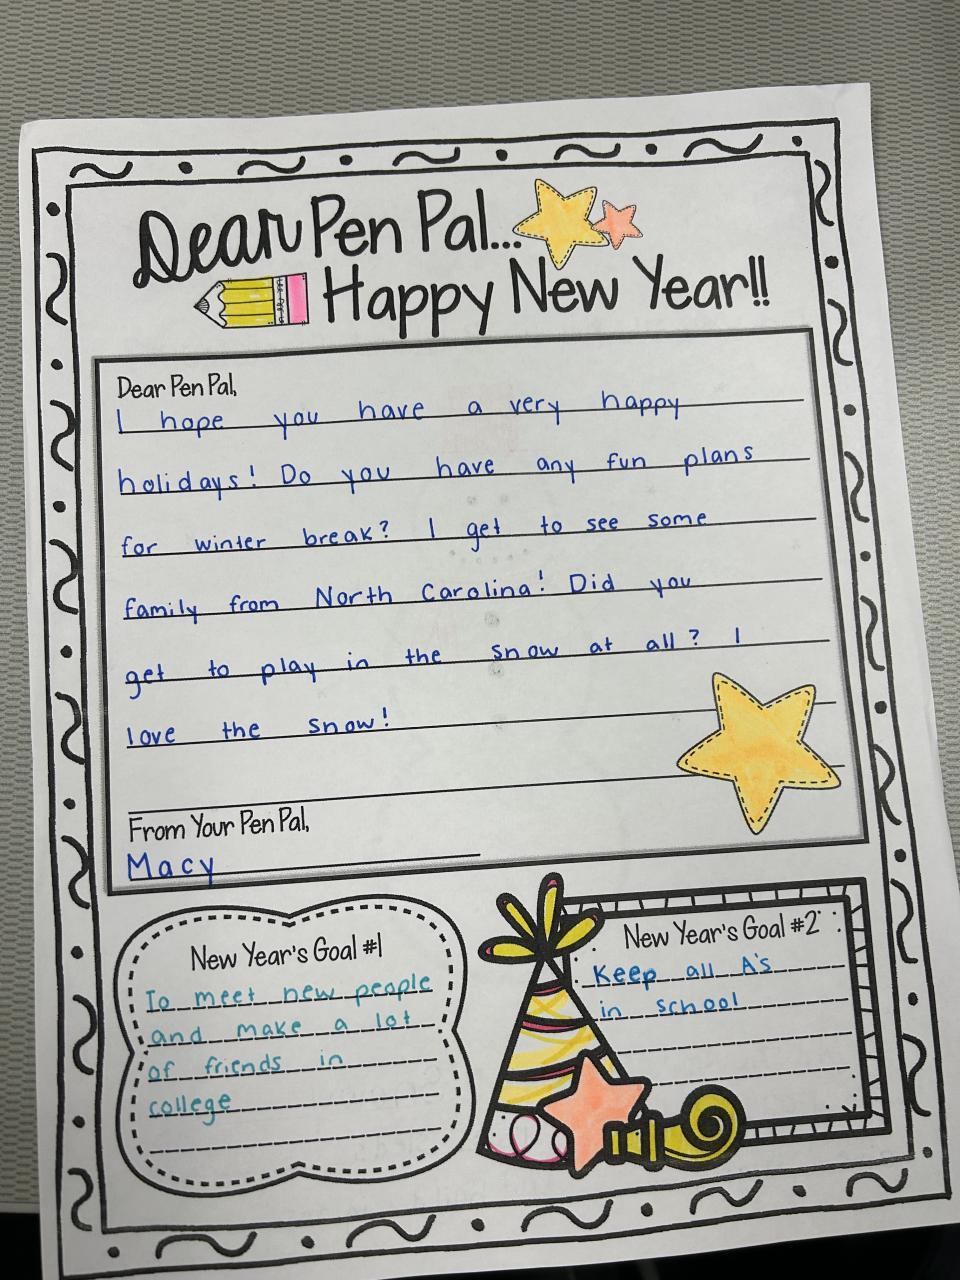 Dear Pen Pal...
Happy New Year!!
Dear Pen Pal,
I hope you have a very happy
holidays! Do you have any fun plans
for winter break? I get to see some
family from North Carolina! Did you
get to play in the snow at all? I
love the snow!
From Your Pen Pal,
Macy
New Year's Goal #1
To meet new people
and make a lot
of friends in
college
New Year's Goal #2
Keep all A's
in school